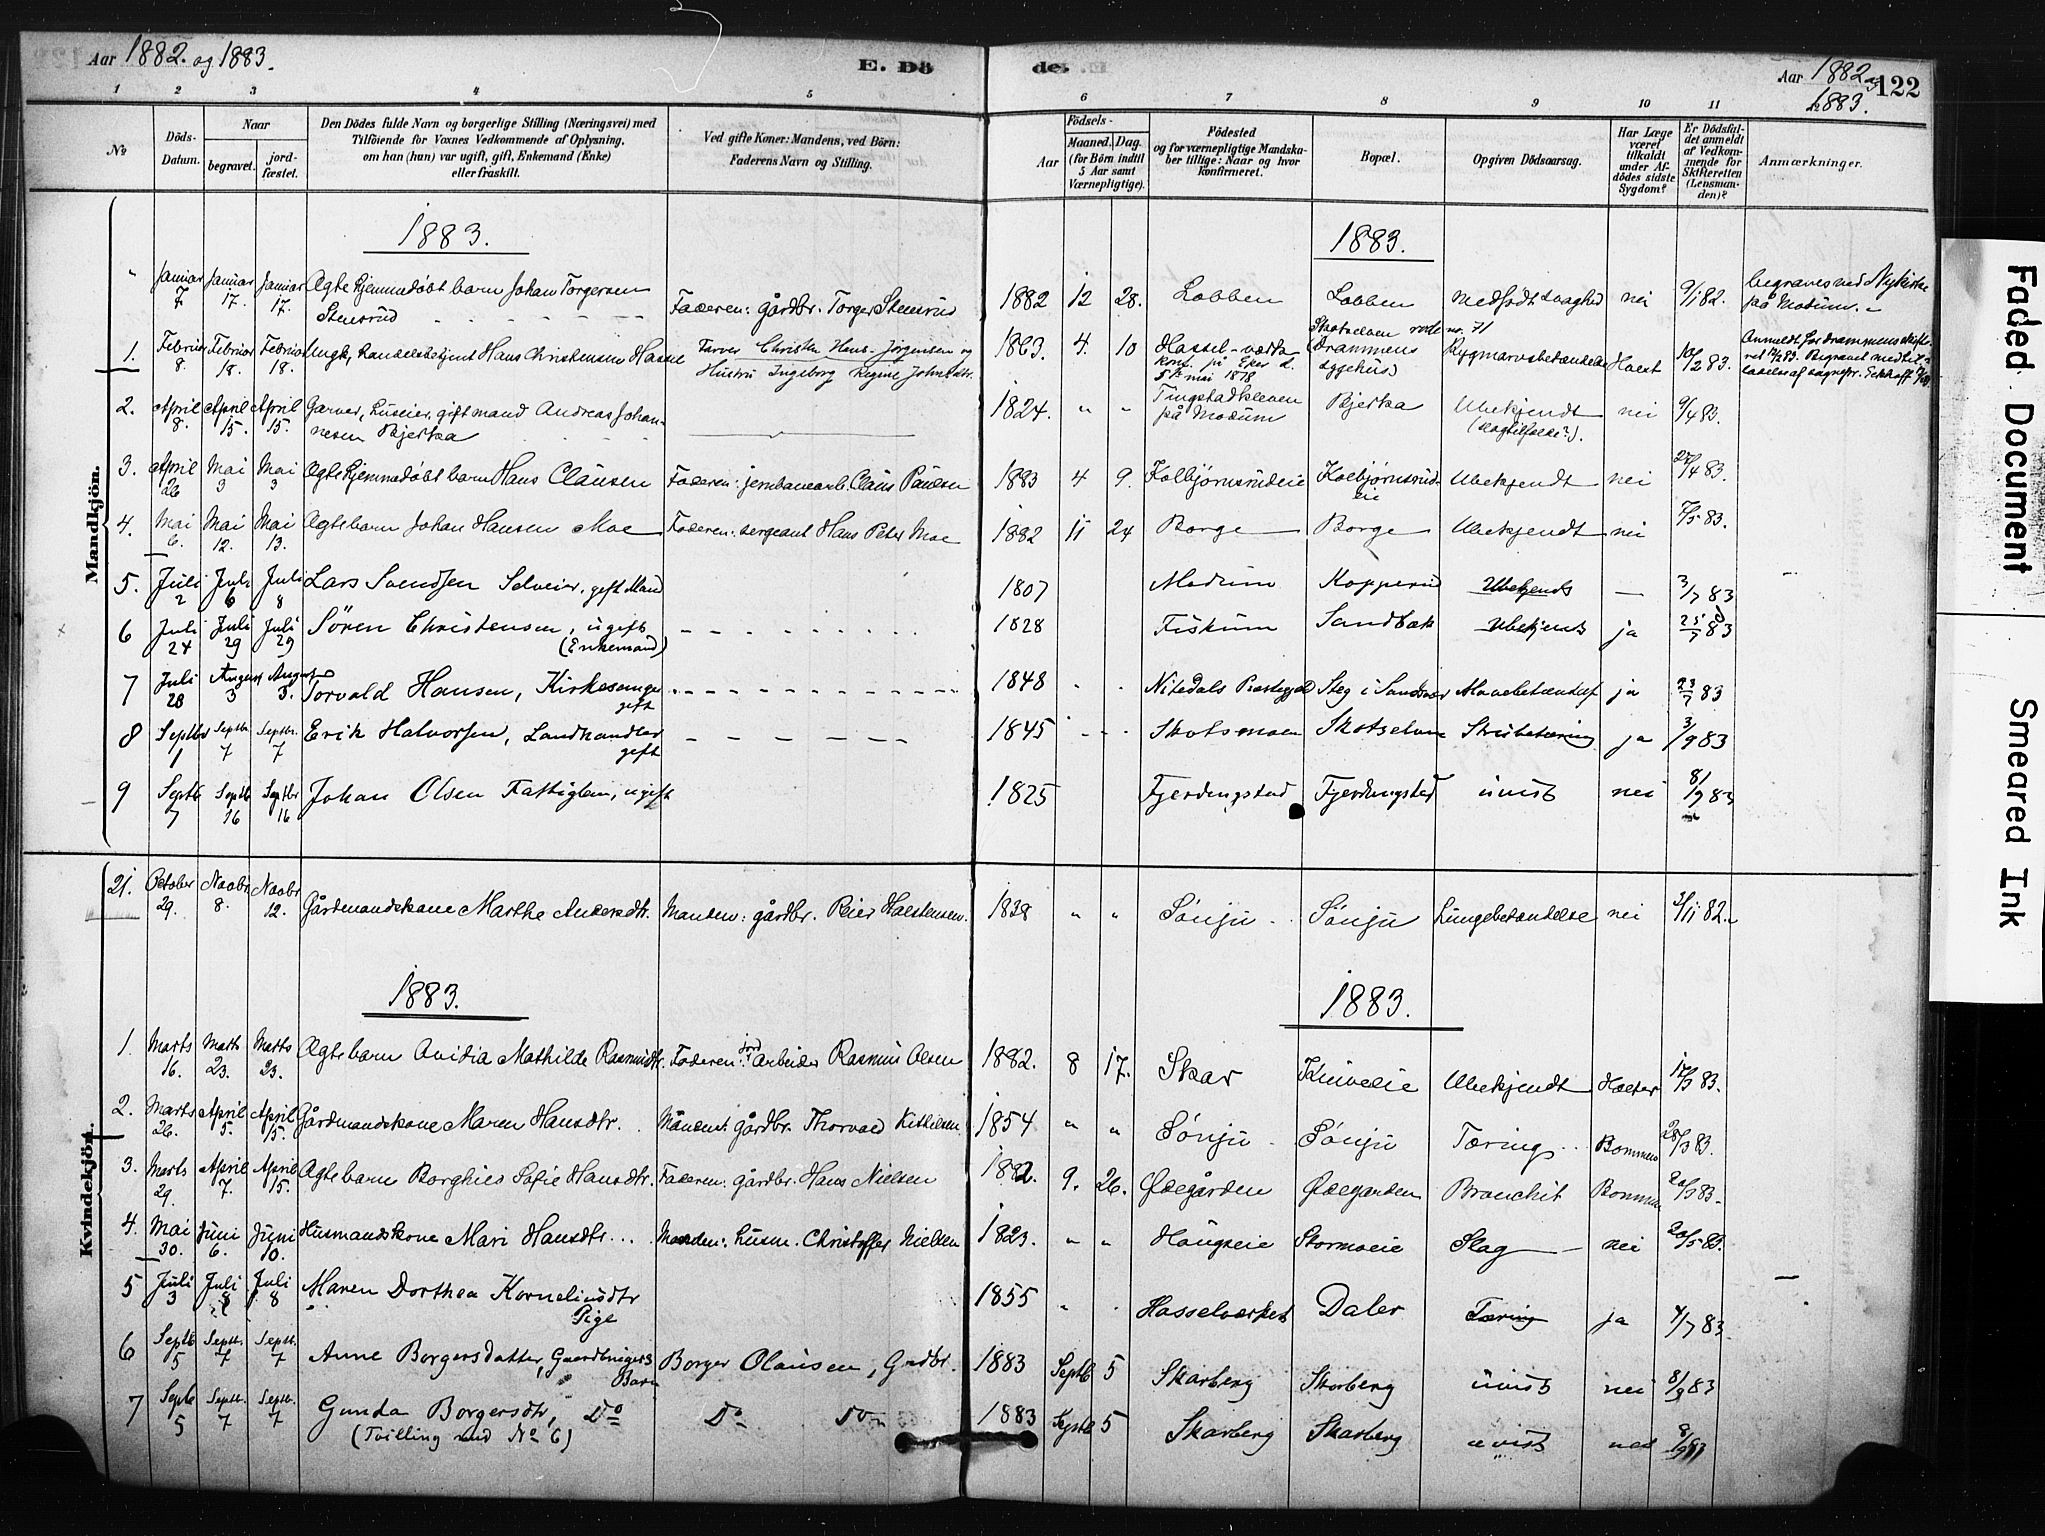 Aar 1882. og 1883.
E. Dö
de.
Aar 1882 og 1883.
122
1 2 3 4 5 6 7 8 9 10 11
No
Döds-Datum.
Naar
begravet.
jord-fæstet.
Den Dödes fulde Navn og borgerlige Stilling (Næringsvei) med
Tilföiende for Voxnes Vedkommende af Oplysning,
om han (hun) var ugift, gift, Enkemand (Enke)
eller fraskilt.
Ved gifte Koner: Mandens, ved Börn:
Faderens Navn og Stilling.
Födsels-
Aar
Maaned. Dag
(for Börn indtil
5 Aar samt
Værnepligtige).
Födested
og for værnepligtige Mandska-
ber tillige: Naar og hvor
konfirmeret.
Bopæl.
Opgiven Dödsaarsag.
Har Læge
været
tilkaldt
under Af-
dödes sidste
Sygdom?
Er Dödsfal-
det anmeldt
af Vedkom-
mende for
Skifteretten
(Lensman-
den)?
Anmærkninger.
Mandkjön.
1883.
1883.
" Januar 7 Januar 17. Januar 17. Ægte hjemmedøbt barn Johan Torgersen Stensrud Faderen: gårdbr. Torger Stensrud 1882 12 28. Lobben Lobben medfødt svaghed nei 9/1 82. begraves ved Nykirke på Modum.
1. Februar 8. Februar 18. Februar 18. Ungk. handelsbetjent Hans Christensen Hassel Farver Christen Hans Jørgensen og Hustru Ingeborg Regine Johnsdtr. 1863. 4. 10 Hassel konf. på Eker d. 5te mai 1878 Skotselven rode no. 71 (Drammens sygehus) Rygmarvsbetændelse 10/2 83.
2. April 8. April 15. April 15. Garver, huseier, gift mand Andreas Johannesen Bjerka 1824. " " Tingstadkleven på Modum Bjerka Ubekjendt (slagtilfælde?). nei 9/4 83.
3. April 26 Mai 3 Mai 3 Ægte hjemmedøbt barn Hans Clausen Faderen: jernbanearb. Claus Paulsen 1883 4 9. Kolbjørnsrudeie Kolbjørnsrudeie Ubekjendt nei 27/4 83.
4. Mai 6. Mai 12. Mai 13. Ægte barn Johan Hansen Moe Faderen: sergeant Hans Peter Moe 1882 11 24 Borge Borge Ubekjendt nei 7/5 83.
5. Juli 2 Juli 6 Juli 8 Lars Svendsen Selveier, gift Mand 1807 Modum Kopperud Ubekjendt — 3/7 83
6 Juli 24 Juli 29 Juli 29 Sören Christensen, ugift (Enkemand) 1828 Fiskum Sandbæk Ubekjendt ja 25/7 83
7 Juli 28 August 3 August 3. Torvald Hansen, Kirkesanger gift 1848 Nitedals Præstegjeld Steg i Sandsvær ja 83
8 Septbr 1 Septbr. 7 Septbr. 7 Erik Halvorsen, Landhandler gift 1845 Skotsmoen Skotselven Strubetæring ja 3/9 83
9 Septb 7 Septb 16 Septbr 16 Johan Olsen Fattiglem, ugift 1825 Fjerdingstad Fjerdingstad uvist nei 8/9 83
Kvindekjön.
21. October 29. Novbr 8. Novbr 12. Gårdmandskone Marthe Andersdtr. Manden: gårdbr. Peter Halstensen. 1838 " " Sønju Sønju Lungebetændelse nei 3/11 82.
1883.
1883.
1. Marts 16. Marts 23. Marts 23. Ægte barn Ovidia Mathilde Rasmusdtr. Faderen: jord arbeider Rasmus Olsen 1882. 8 17. Skar Ubekjendt 17/3 83.
2. Marts 26. April 5. April 15. Gårdmandskone Maren Hansdtr. Manden: gårdbr. Thorvald Kittilsen 1854 " " Sønju Sønju Tæring 28/3 83.
3. Marts 29. April 7. April 15. Ægte barn Borghild Sofie Hansdtr. Faderen: gårdbr. Hans Nielsen 1882. 9. 26. Ødegården Ødegarden Bronchit
4. Mai 30. Juni 6. Juni 10. Husmandskone Mari Hansdtr. Manden: husm. Christoffer Nielsen 1823. " " Haugseie Stormoeie Slag nei
5 Juli 3 Juli 8 Juli 8 Maren Dorthea Kornelinsdtr Pige 1855 Hasselværket Daler Tæring ja 4/7 83.
6 Septb 5 Septbr. 7 Septbr. 7 Anne Borgersdatter, Gaardbrugers Barn Borger Olausen, Grdbr. 1883 Septb 5 Skarberg Skarberg uvist nei 8/9 83
7 Septb 5 Septbr. 7 Septbr. 7 Gunda Borgersdtr, Do (Tvilling med No 6) Do Do 1883 Septb 5 Skarberg Skarberg uvist nei 8/9 83
Faded Document
Smeared Ink